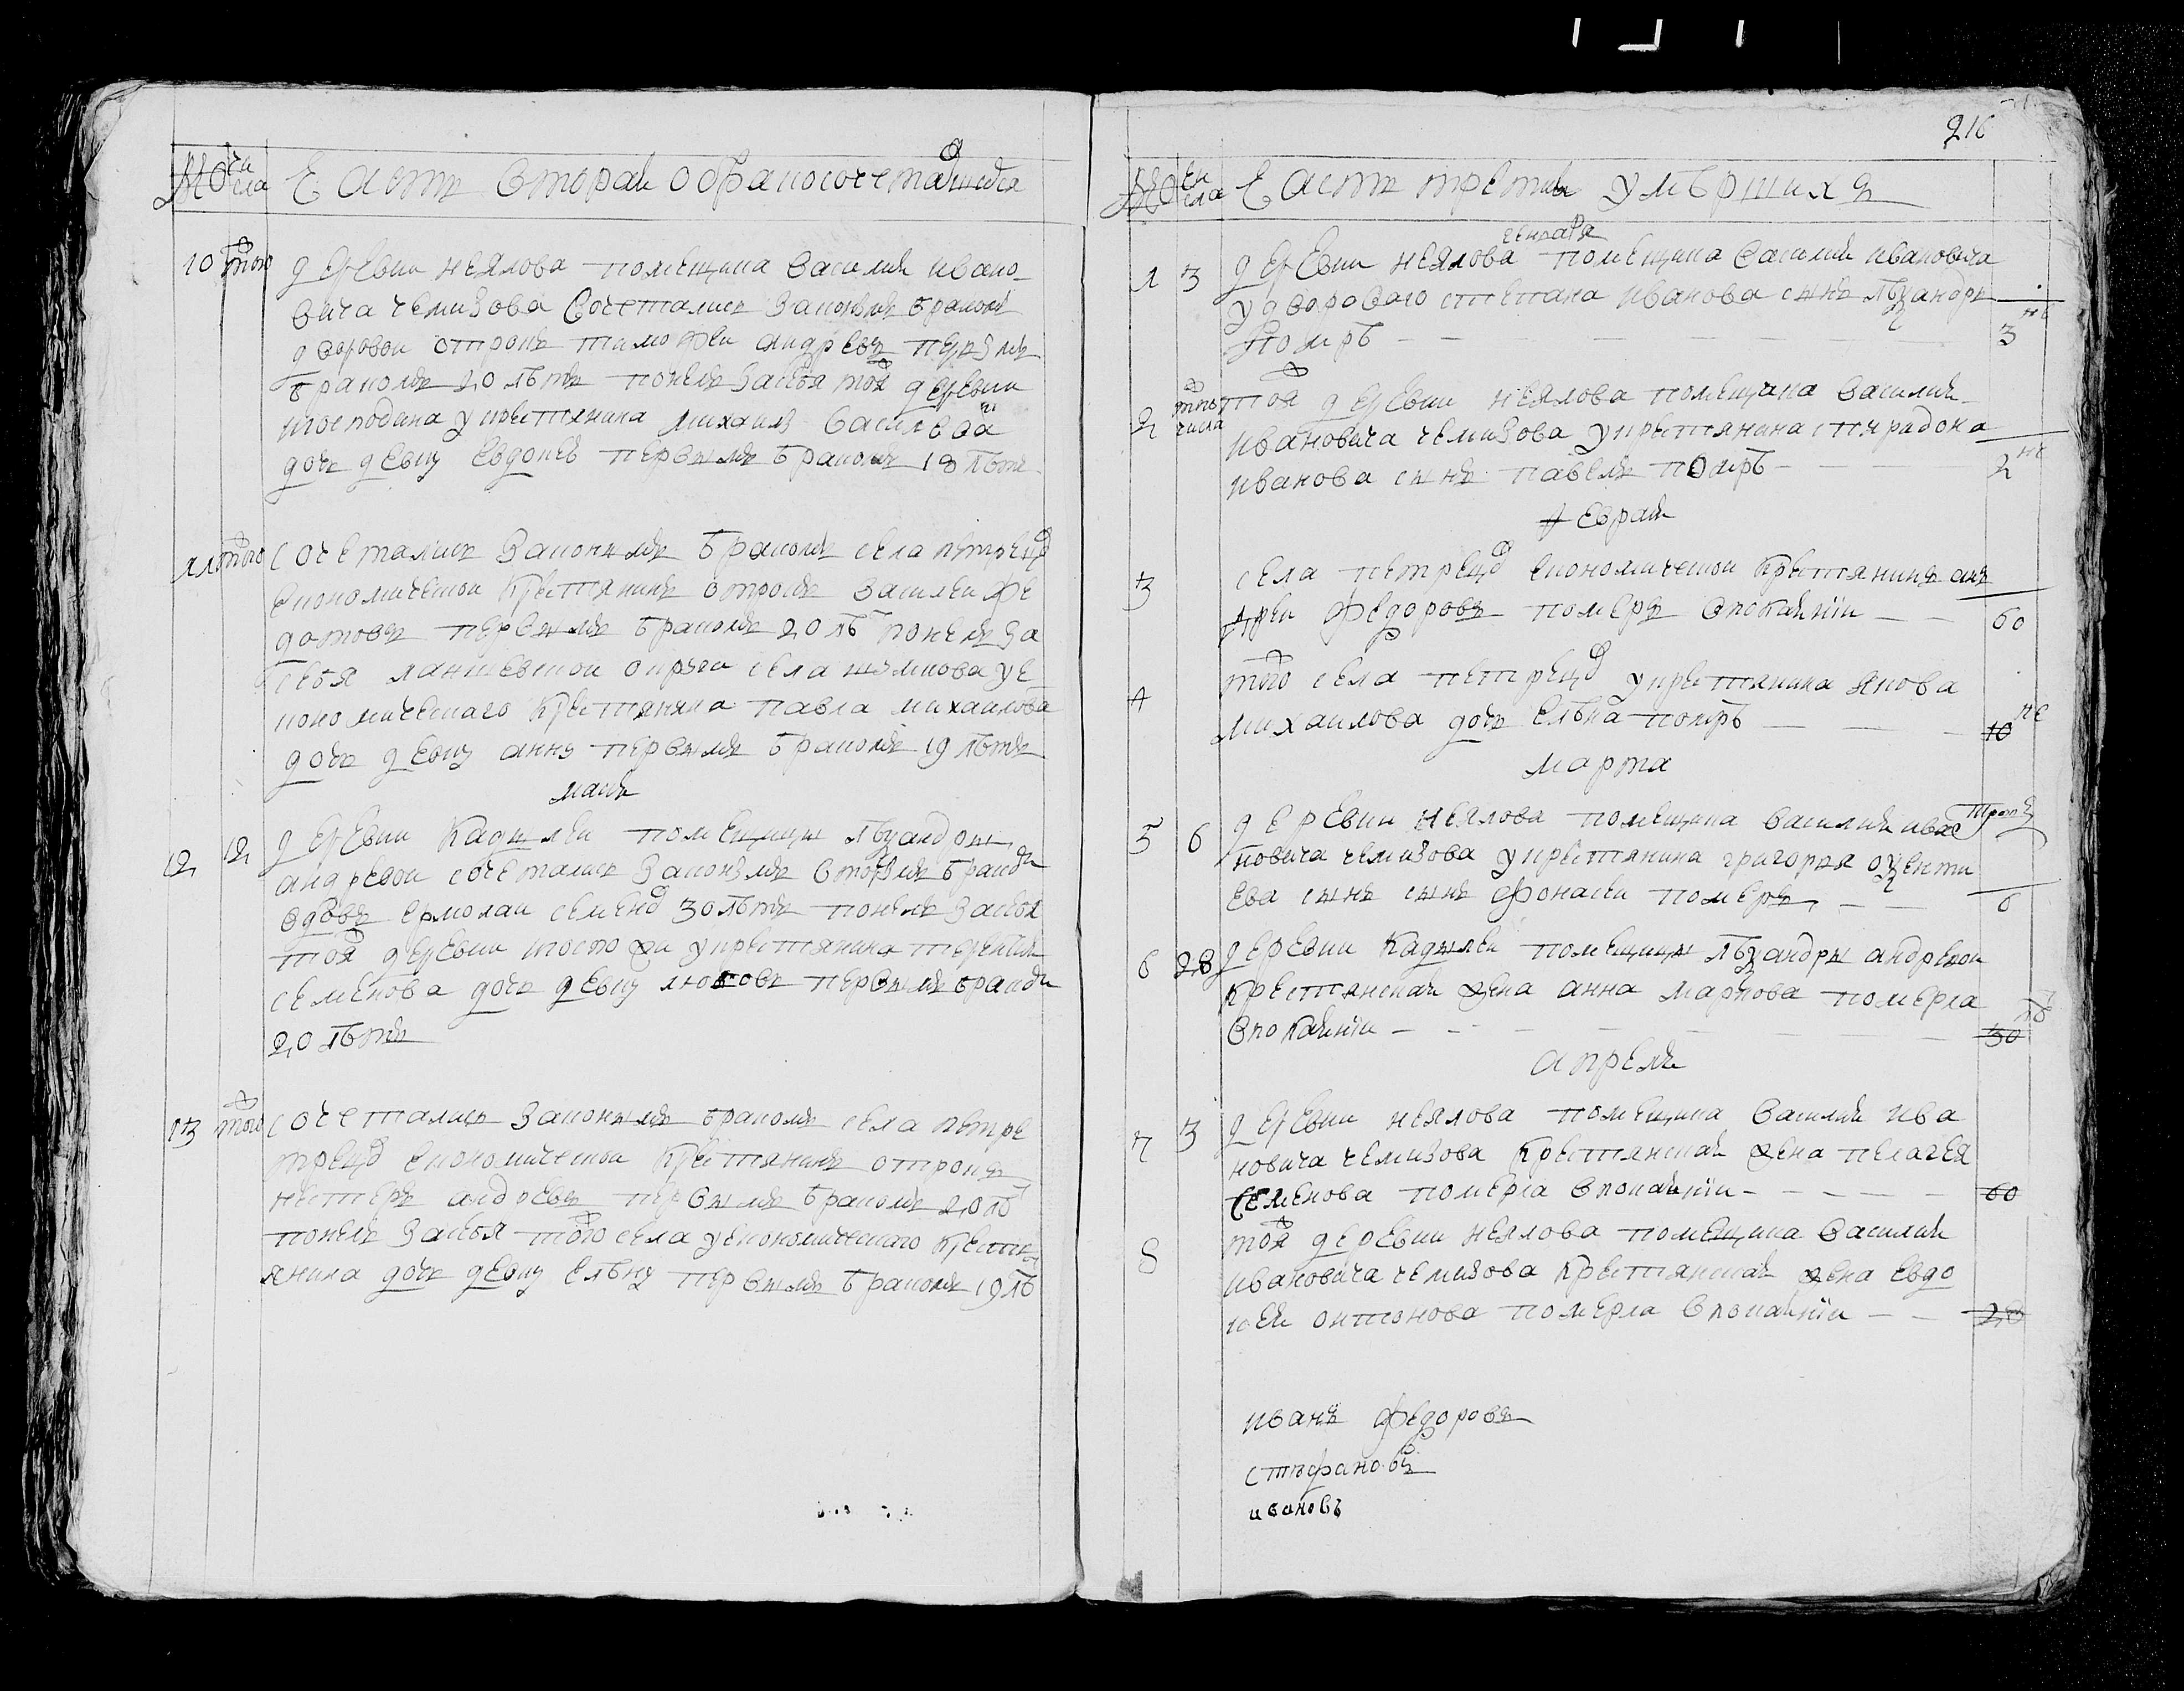 № числа Часть вторая о бракосочетавшихся
10 того деревни неялова помещика василия ивано
вича чемизова сочетались законымъ бракомъ
дворовой отрокъ тимофеи андреевъ первымъ
бракомъ 20 лѣтъ понелъ засебя тоя деревни
господина у крестянина михаила василева
дочь девку евдокею первымъ бракомъ 18 лѣтъ
11 того сочетались законымъ бракомъ села петрецо
економическои крестянинъ отрокъ василеи фе
дотовъ первымъ бракомъ 20 лѣ понелъ за
себя лаишевскои округи села шумкова у е
кономическаго крестянина павла михаилова
дочь девку анну первымъ бракомъ 19 лѣтъ
маия
12 12 деревни кадылеи помещицы
андревои сочетались законымъ вторымъ бракомъ
вдовъ ермолаи семенов 30 лѣтъ понелъ засебя
тоя деревни госпожи у крестянина терентия
семенова дочь девку любовь первымъ бракомъ
20 лѣтъ
13 того сочетались законымъ бракомъ села петре
трецо економическои крестянинъ отрокъ
нестеръ андреевъ первымъ бракомъ 20 лѣ
понелъ засебя того села у економическаго кресть
янина дочь девку елѣну первымъ бракомъ 19 лѣ
216
№ числа Часть третия умѣршихъ
генваря
1 3 деревни неялова помещика василия ивановича
у двороваго степана иванова сынъ
помрѣ 3 не
2 того числа тоя деревни неялова помещика василия
ивановича чемизова у крестянина спиридона
иванова сынъ павелъ помрѣ 2 не
февраля
3 села петрецо економическои крестянинъ ан
дреи федоровъ померъ впокаянiи 60
4 того села петрецо у крестянина якова
михаилова дочь елѣна помрѣ 10 не
марта
5 6 деревни неялова помещика василия ива
новича чемизова у крестянина григория
ева сынъ сынъ фонасеи померъ 6
6 28 деревни кадылеи помещицы андревои
крестянская жена анна маркова померла
впокаянiи 30
апреля
7 3 деревни неялова помещика василия ива
новича чемизова крестянская жена пелагея
семенова померла впокаянiи 60
8 тоя деревни неялова помещика василия
ивановича чемизова крестянская жена евдо
кея онтонова померла впокаянiи 20
иванъ федоровъ
стефановъ
ивановъ